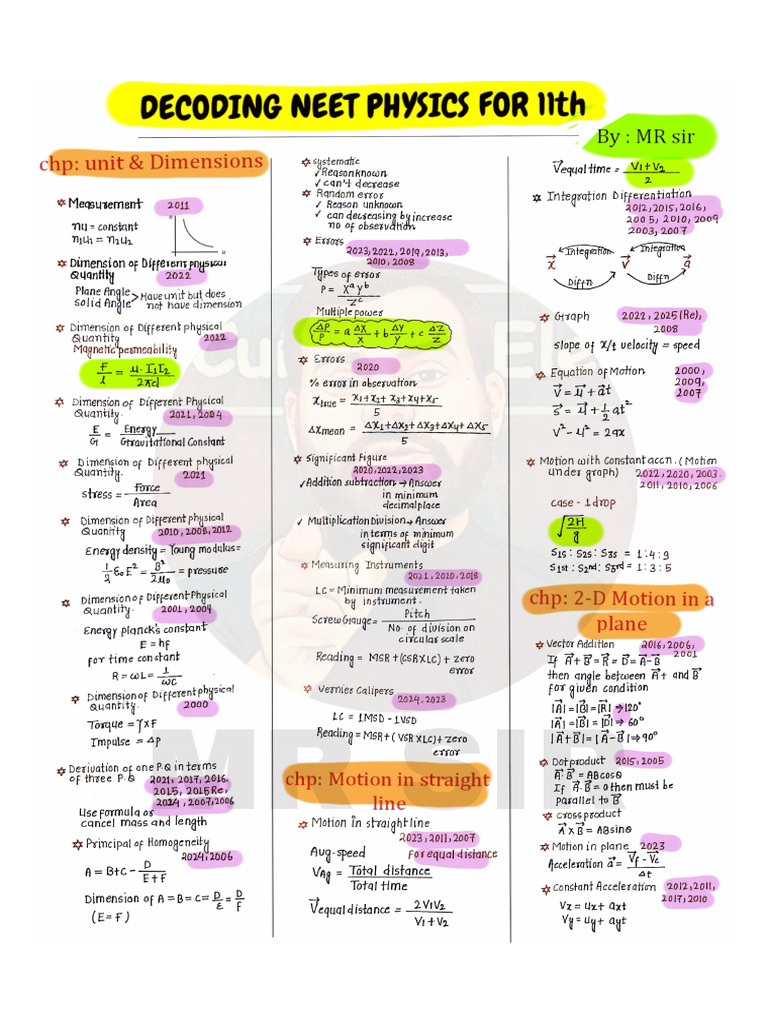 DECODING NEET PHYSICS FOR 11th
By : MR sir
chp: unit & Dimensions
Measurement 2011
nu = constant
n₁u₁ = n₂u₂
n
u
Dimension of Different physical
Quantity 2022
Plane Angle
solid Angle > Have unit but does
not have dimension
Dimension of Different physical
Quantity 2022
Magnetic permeability
F/l = μ. I₁ I₂ / 2πd
Dimension of Different Physical
Quantity. 2021, 2004
E/G = Energy / Gravitational Constant
Dimension of Different physical
Quantity. 2021
stress = Force / Area
Dimension of Different physical
Quantity 2010, 2008, 2012
Energy density = Young modulus =
1/2 ε₀ E² = B²/2μ₀ = pressure
Dimension of Different Physical
Quantity. 2001, 2004
Energy planck's constant
E = hf
for time constant
R = ωL = 1/ωC
Dimension of Different physical
Quantity. 2000
Torque = r × F
Impulse = ΔP
Derivation of one P.Q in terms
of three P.Q 2021, 2017, 2016
2015, 2015 Re,
2024, 2007, 2006
Use formula or
cancel mass and length
Principal of Homogeneity
2024, 2006
A = B+C - D / E+F
Dimension of A = B = C = D/E = D/F
(E = F)
systematic
✓ Reason known
✓ can't decrease
Random error
✓ Reason unknown
✓ can decreasing by increase
no of observation
Errors
2023, 2022, 2019, 2013,
2010, 2008
Types of error
P = Xᵃ Yᵇ / Zᶜ
Multiple power
ΔP/P = a ΔX/X + b ΔY/Y + c ΔZ/Z
Errors
2020
% error in observation
X true = X₁+X₂+X₃+X₄+X₅ / 5
ΔX mean = ΔX₁+ΔX₂+ΔX₃+ΔX₄+ΔX₅ / 5
Significant Figure
2020, 2022, 2023
✓ Addition subtraction → Answer
in minimum
decimal place
✓ Multiplication Division → Answer
in terms of minimum
significant digit
Measuring Instruments
2021, 2020, 2018
LC = Minimum measurement taken
by instrument.
Screw Gauge = Pitch / No. of division on
circular scale
Reading = MSR + (CSR X LC) + zero
error
Vernier Calipers
2024, 2023
LC = 1MSD - 1VSD
Reading = MSR + ( VSR X LC) + zero
error
chp: Motion in straight
line
Motion in straight line
2023, 2011, 2007
Avg. speed for equal distance
VAg = Total distance / Total time
V⃗ equal distance = 2V₁V₂ / V₁+V₂
V⃗ equal time = V₁+V₂ / 2
Integration Differentiation
2012, 2015, 2016,
2005, 2010, 2009
2003, 2007
Integration Integration
x⃗ v⃗ a⃗
Diffn Diffn
Graph 2022, 2025 (Re),
2008
slope of x/t velocity = speed
Equation of Motion 2000,
2009,
2007
V⃗ = u⃗ + a⃗t
s⃗ = u⃗ + 1/2 at²
V² - u² = 2ax
Motion with Constant accn. (Motion
under graph) 2022, 2020, 2003.
2011, 2010, 2006
case - 1 drop
√2H/g
S1s : S2s : S3s = 1 : 4 : 9
S1st : S2nd : S3rd = 1 : 3 : 5
chp: 2-D Motion in a
plane
Vector Addition 2016, 2006,
2001
If A⃗ + B⃗ = R⃗ = D⃗ = A⃗ - B⃗
then angle between A⃗ + and B⃗
for given condition
|A| = |B| = |R| → 120°
|A| = |B| = |D| → 60°
|A + B| = |A - B| → 90°
Dot product 2015, 2005
A⃗ · B⃗ = AB cosθ
If A⃗ · B⃗ = 0 then must be
parallel to B⃗
cross product
A⃗ X B⃗ = AB sinθ
Motion in plane 2023
Acceleration a⃗ = Vf - Vc / Δt
Constant Acceleration 2012, 2011,
2017, 2010
Vx = ux + axt
Vy = uy + ayt
MR SIR